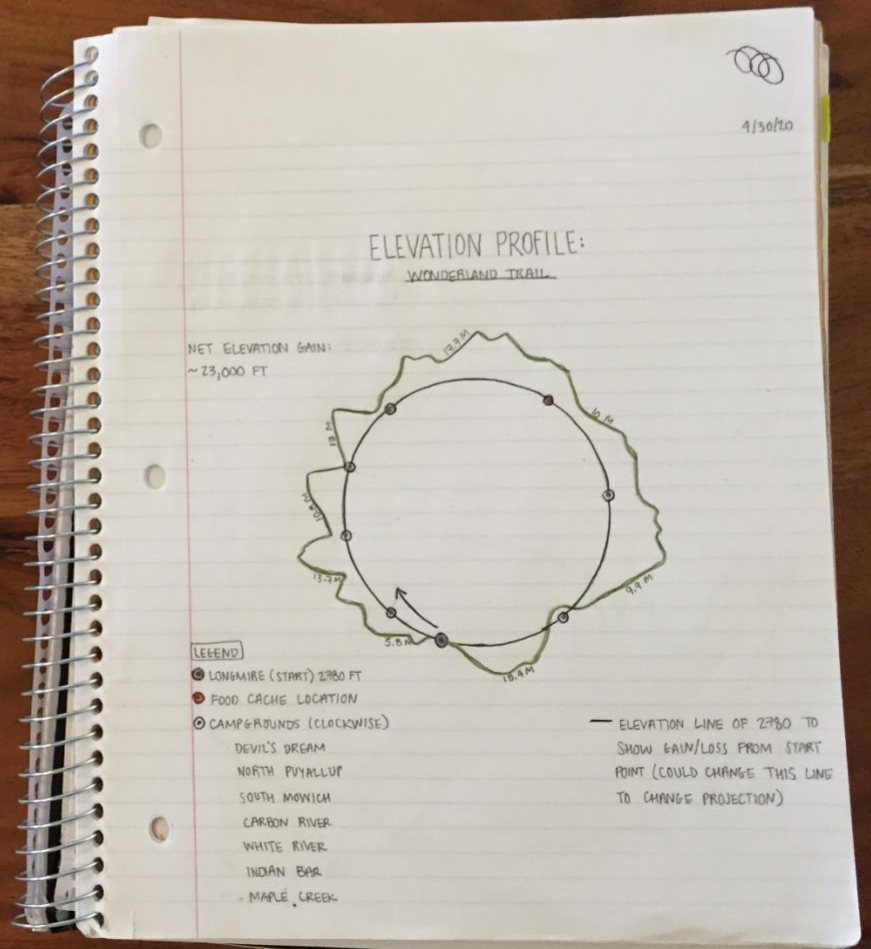 4/30/20
ELEVATION PROFILE:
WONDERLAND TRAIL
NET ELEVATION GAIN:
~23,000 FT
5.8 M
13.7 M
12 M
10 M
9.9 M
LEGEND
LONGMIRE (START) 2780 FT
FOOD CACHE LOCATION
CAMPGROUNDS (CLOCKWISE)
DEVIL'S DREAM
NORTH PUYALLUP
SOUTH MOWICH
CARBON RIVER
WHITE RIVER
INDIAN BAR
MAPLE CREEK
ELEVATION LINE OF 2780 TO
SHOW GAIN/LOSS FROM START
POINT (COULD CHANGE THIS LINE
TO CHANGE PROJECTION)